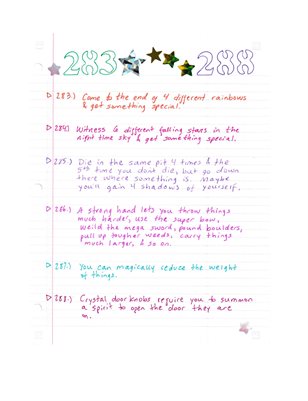 283 288
283.) Come to the end of 4 different rainbows
& get something special.
284.) Witness 6 different falling stars in the
night time sky & get something special.
285.) Die in the same pit 4 times & the
5th time you dont die, but go down
there where something is. Maybe
you'll gain 4 shadows of yourself.
286.) A strong hand lets you throw things
much harder, use the super bow,
weild the mega sword, pound boulders,
pull up tougher weeds, carry things
much larger, & so on.
287.) You can magically reduce the weight
of things.
288.) Crystal door knobs require you to summon
a spirit to open the door they are
on.